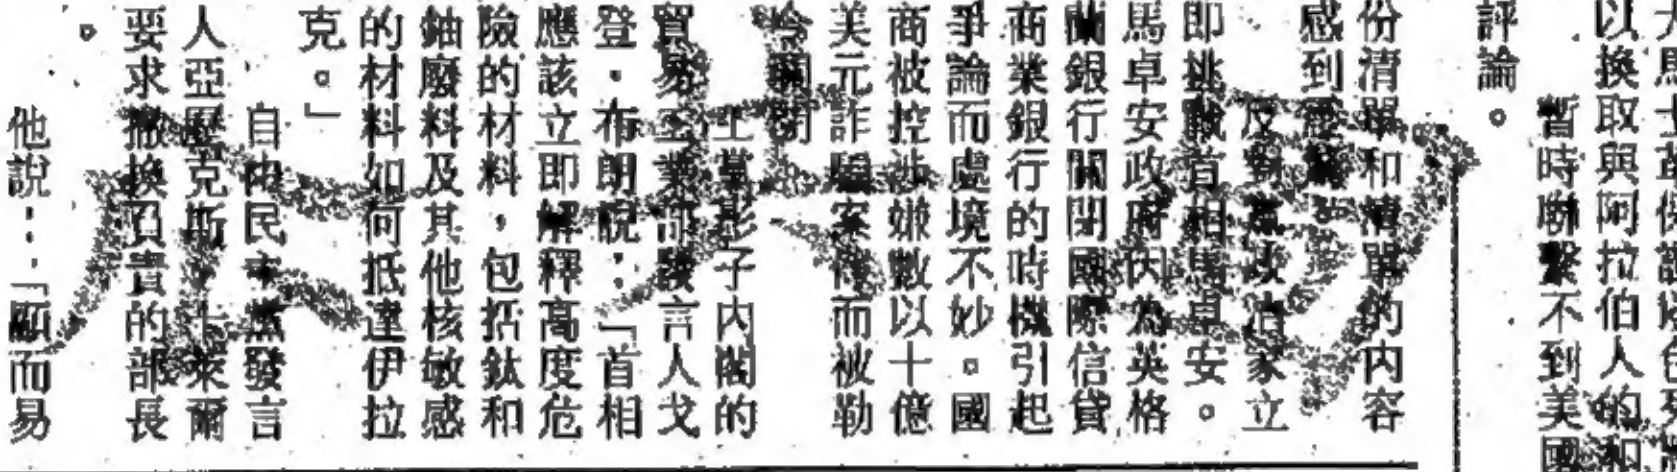 以換取與阿拉伯人的和
暫時聯繫不到美國
評論。
份清單和清單的內容
感到震
反對黨政治家立
即挑戰首相馬卓安。
馬卓安政府因為英格
蘭銀行關閉國際信貸
商業銀行的時機引起
爭論而處境不妙。國
商被控涉嫌數以十億
美元詐騙案件而被勒
令關閉
工黨影子內閣的
貿易工業部發言人戈
登.布朗說:「首相
應該立即解釋高度危
險的材料,包括鈦和
鈾廢料及其他核敏感
的材料如何抵達伊拉
克。」
自由民主黨發言
人亞歷克斯.卡萊爾
要求撤換負責的部長
。
他說:「顯而易